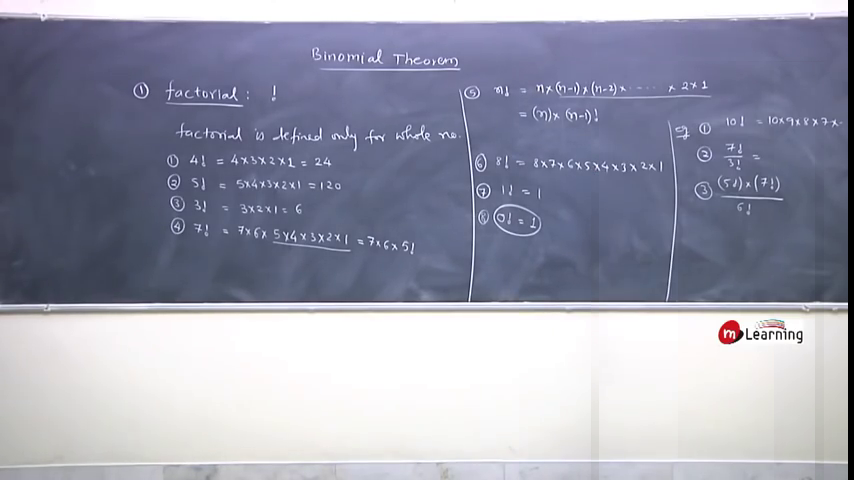 Binomial Theorem
① factorial : !
factorial is defined only for whole no.
① 4! = 4×3×2×1 = 24
② 5! = 5×4×3×2×1 = 120
③ 3! = 3×2×1 = 6
④ 7! = 7×6×5×4×3×2×1 = 7×6×5!
⑤ n! = n×(n-1)×(n-2)×.....× 2×1
= (n)×(n-1)!
⑥ 8! = 8×7×6×5×4×3×2×1
⑦ 1! = 1
⑧ 0! = 1
eg ① 10! = 10×9×8×7×..
② 7!/3! =
③ (5!)×(7!)/6!
m Learning